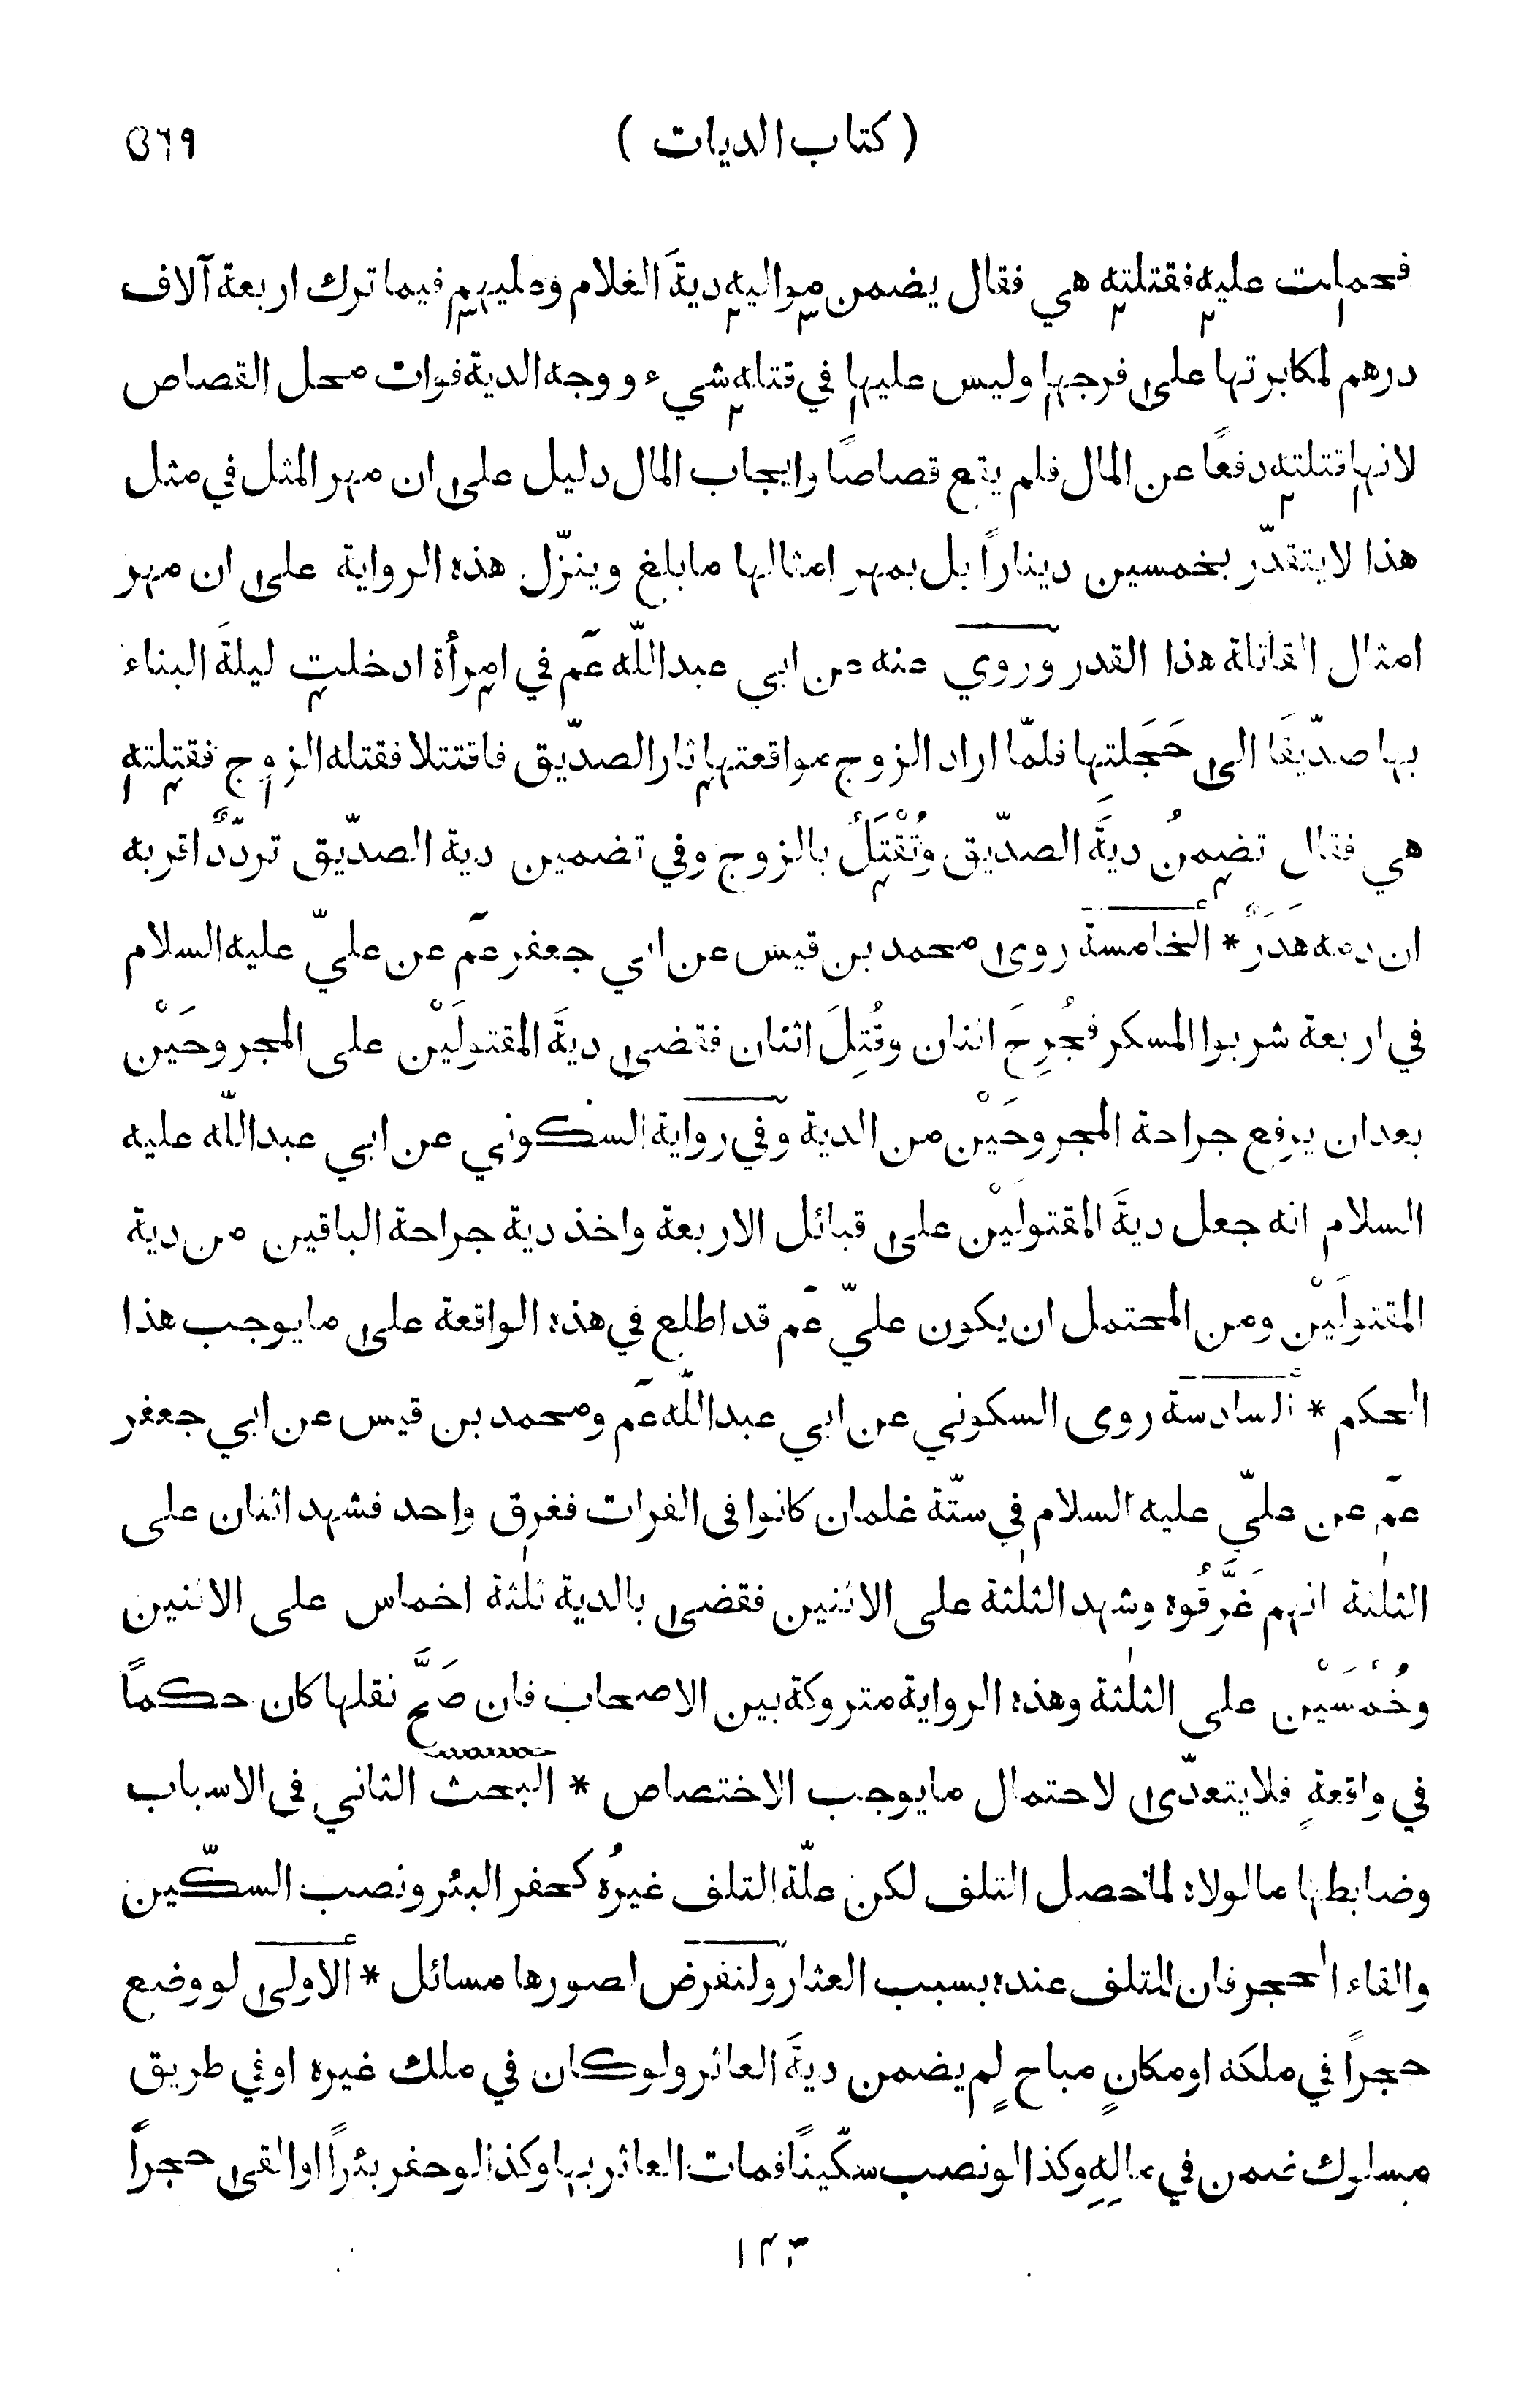 (كتاب الديات) ٥٦٩
فحملت عليه فقتلته هي فقال يضمن مواليه ديةَ الغلام وعليهم فيما ترك اربعة آلاف
درهم لمكابرتها على فرجها وليس عليها في قتله شيء ووجه الدية فوات محل القصاص
لانها قتلته دفعًا عن المال فلم يقع قصاصًا وايجاب المال دليل على ان مهر المثل في مثل
هذا لا يتقدّر بخمسين دينارًا بل بمهر امثالها ما بلغ وينزّل هذه الرواية على ان مهر
امثال القاتلة هذا القدر وروي عنه عن ابي عبد اللّه عم في امرأة ادخلت ليلةَ البناء
بها صدّيقًا الى حَجَلتها فلمّا اراد الزوج مواقعتها ثار الصدّيق فاقتتلا فقتله الزوج فقتلته
هي فقال تضمنُ ديةَ الصدّيق وتُقْتَلُ بالزوج وفي تضمين دية الصدّيق تردّدٌ اقربه
ان دمه هَدَرٌ * الخامسة روى محمد بن قيس عن ابي جعفر عم عن عليّ عليه السلام
في اربعة شربوا المسكر فجُرِحَ اثنان وقُتِلَ اثنان فقضى ديةَ المقتولَيْن على المجروحَيْن
بعد ان يرفع جراحة المجروحَيْن من الدية وفي رواية السكوني عن ابي عبد اللّه عليه
السلام انه جعل ديةَ المقتولَيْن على قبائل الاربعة واخذ دية جراحة الباقين من دية
المقتولَيْن ومن المحتمل ان يكون عليّ عم قد اطلع في هذه الواقعة على ما يوجب هذا
الحكم * السادسة روى السكوني عن ابي عبد اللّه عم ومحمد بن قيس عن ابي جعفر
عم عن عليّ عليه السلام في ستّة غلمان كانوا فى الفرات فغرق واحد فشهد اثنان على
الثلٰثة انهم غَرَّقُوه وشهد الثلٰثة على الاثنين فقضى بالدية ثلٰثة اخماس على الاثنين
وخُمْسَيْن على الثلٰثة وهذه الرواية متروكة بين الاصحاب فان صَحَّ نقلها كان حكمًا
في واقعةٍ فلا يتعدّى لاحتمال ما يوجب الاختصاص * البحث الثاني فى الاسباب
وضابطها ما لولاه لما حصل التلف لكن علّة التلف غيرُه كحفر البئر ونصب السكّين
والقاء الحجر فان المتلف عنده بسبب العثار ولنفرض لصورها مسائل * الاولى لو وضع
حجرًا في ملكه او مكانٍ مباحٍ لم يضمن ديةَ العاثر ولو كان في ملك غيره او في طريق
مسلوك ضمن في مالِهِ وكذا لو نصب سكّينًا فمات العاثر بها وكذا لو حفر بئرًا او القى حجرًا
١٤٣